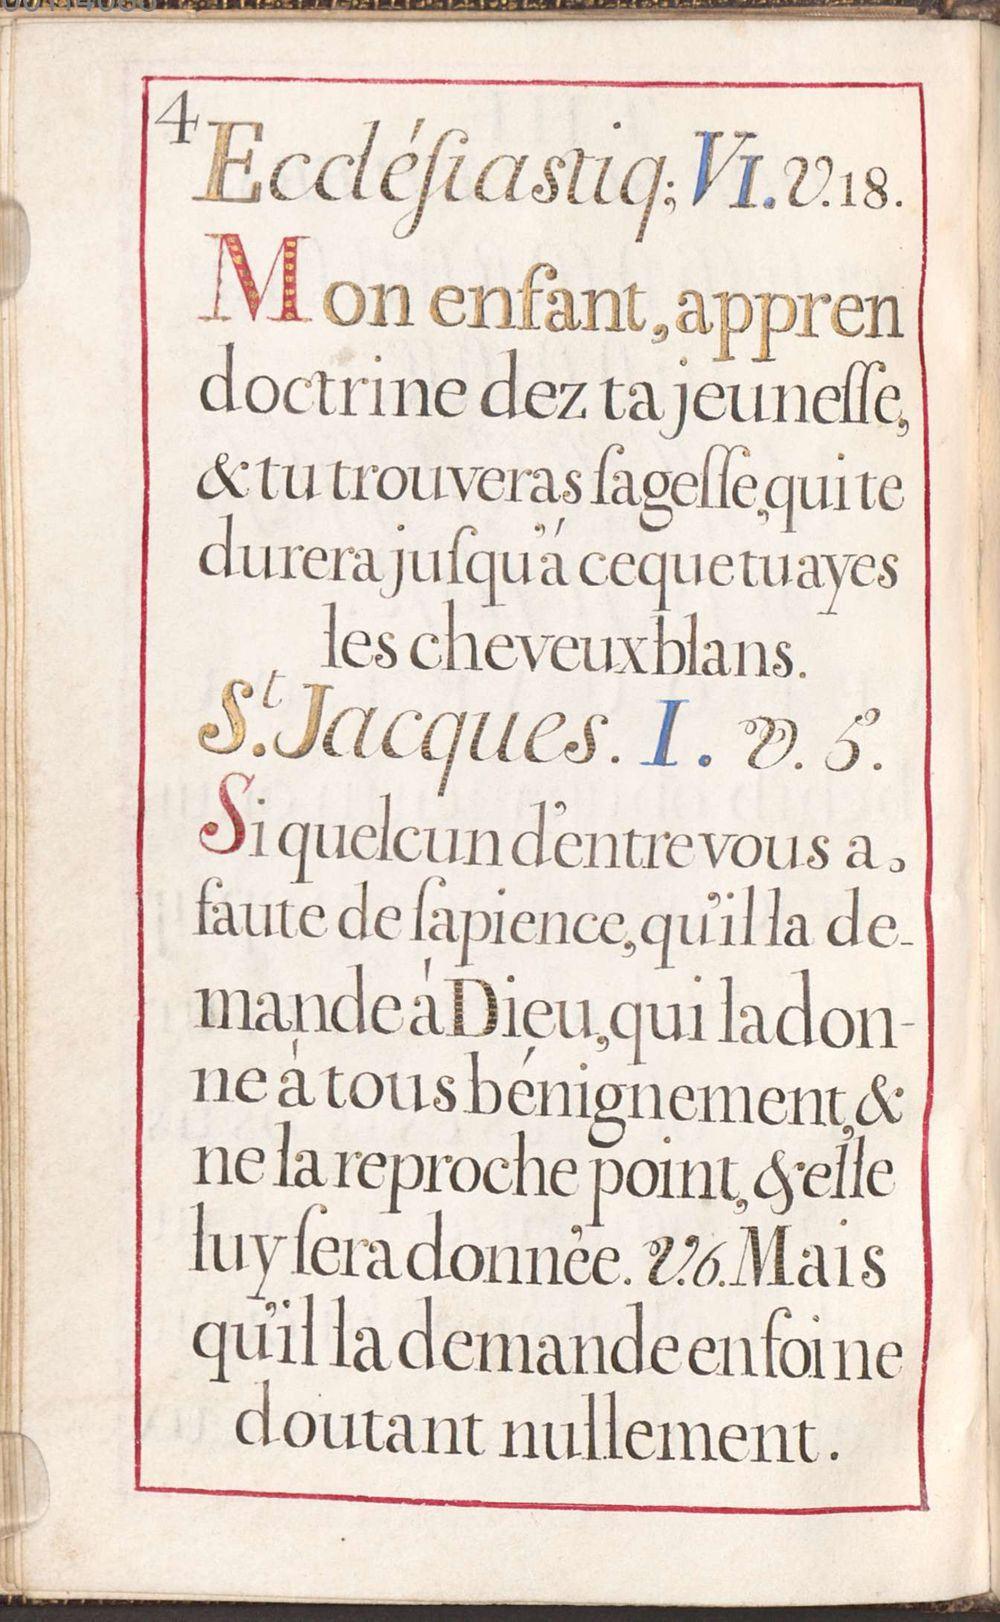 4
Ecclésiastiq; VI. V. 18.
Mon enfant, appren
doctrine dez ta jeuneſſe,
& tu trouveras ſageſſe, qui te
durera juſqu'á ce que tu ayes
les cheveux blans.
St. Jacques. I. V. 5.
Si quelcun d'entre vous a
faute de ſapience, qu'il la de-
mande à Dieu, qui la don-
ne à tous bénignement, &
ne la reproche point, & elle
luy ſera donnée. V. 6. Mais
qu'il la demande en foi ne
doutant nullement.